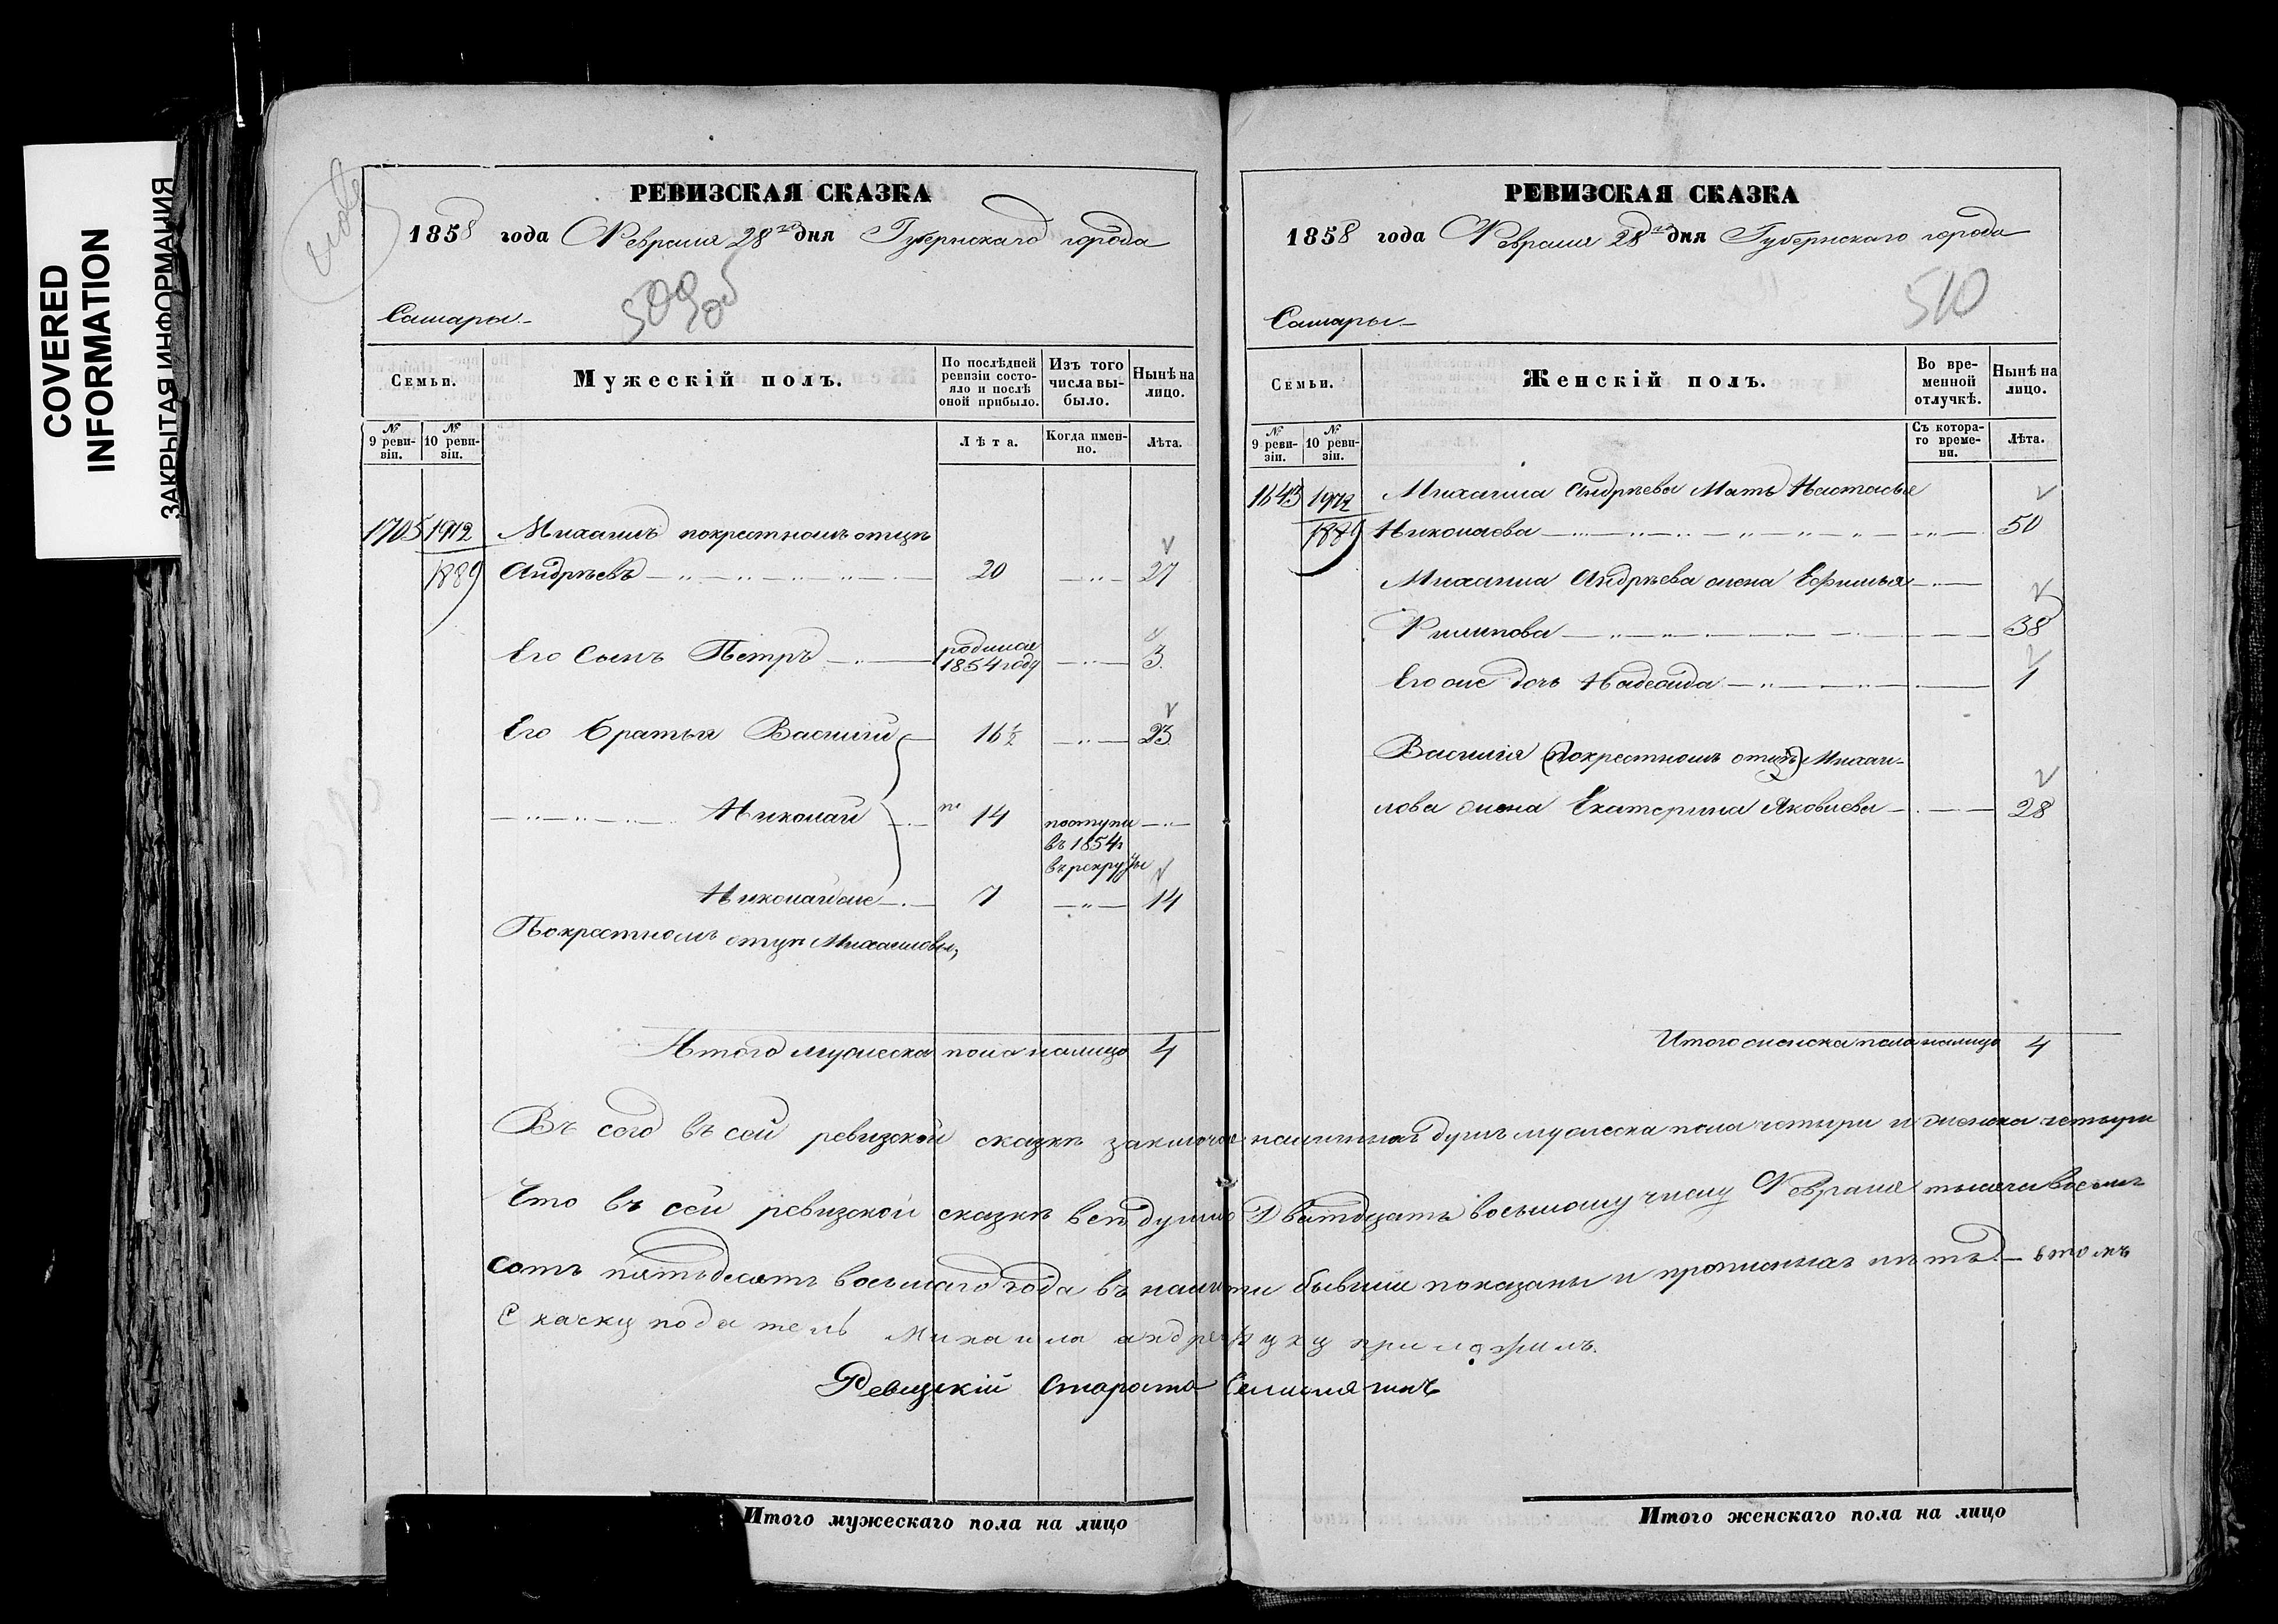 COVERED
INFORMATION
ЗАКРЫТАЯ ИНФОРМАЦИЯ
РЕВИЗСКАЯ СКАЗКА
1858 года Февраля 28го дня Губернскаго города
509об
Самары
Семьи.
Мужескій полъ.
По послѣдней ревизіи состояло и послѣ оной прибыло.
Изъ того числа выбыло.
Нынѣ на лицо.
№ 9 ревизіи.
№ 10 ревизіи.
Лѣта.
Когда именно.
Лѣта.
1705 1912 Михаилъ покрестномъ отцѣ
1889 Андрѣевъ 20 27
Его Сынъ Петръ родился 1854 году 3
Его братья Василий 16½ 23
Николай 14 поступи
въ 1854г
въ рекруты
Николай же 7 14
Покрестномъ отцѣ Михаиловы,
Итого мужеска пола налицо 4
РЕВИЗСКАЯ СКАЗКА
1858 года Февраля 28го дня Губернскаго города
510
Самары
Семьи.
Женскій полъ.
Во временной отлучкѣ.
Нынѣ на лицо.
№ 9 ревизіи.
№ 10 ревизіи.
Съ котораго времени.
Лѣта.
1643 1912 Михаила Андрѣева Мать Настасья
1889 Николаева 50
Михаила Андрѣева жена Ефимья
Филипова 38
Его же дочь Надежда 1
Василія (покрестномъ отцѣ) Михаи-
лова жена Екатерина Яковлева 28
Итого женска пола налицо 4
Въ сей ревизской сказкѣ наличныхъ душъ мужеска пола четыри и женска четыри
Что въ сей ревизской сказкѣ всѣ души по Дватцать восьмому числу Февраля тысяча восемь
сотъ пятьдесятъ восьмаго года въ наличии бывшие показаны и прописныхъ нѣтъ. - втомъ
Скаску податель михаила андрев руку приложилъ.
Ревизскій Староста
Итого мужескаго пола на лицо
Итого женскаго пола на лицо